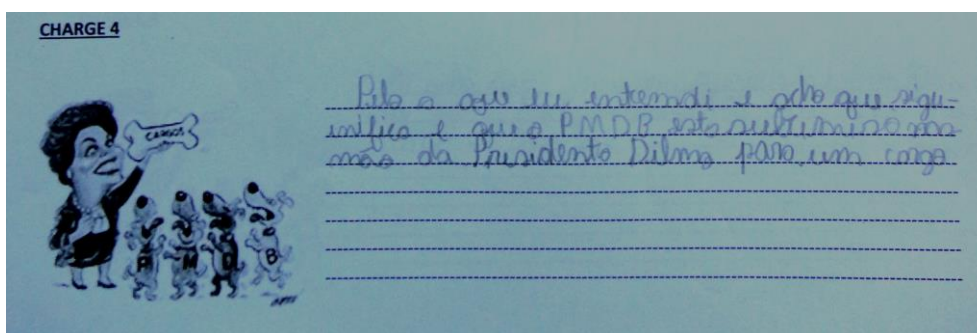 CHARGE 4
CARGOS
P M D B
Pelo o que eu entendi e acho que sigu-
inifica é que o PMDB esta submisso na
mão da Presidente Dilma para um cargo